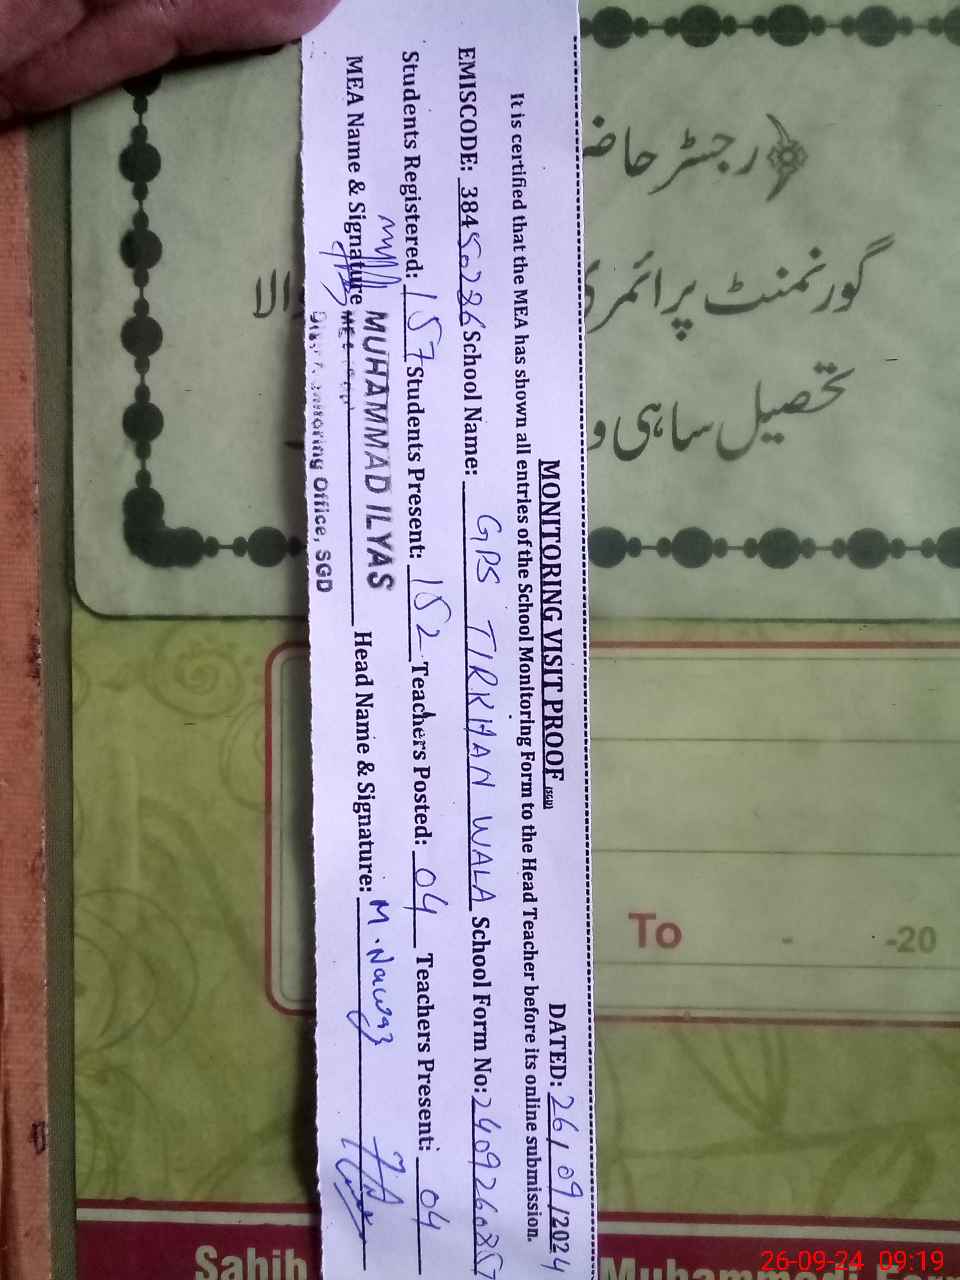 MONITORING VISIT PROOF (SGD) DATED: 26/09/2024
It is certified that the MEA has shown all entries of the School Monitoring Form to the Head Teacher before its online submission.
EMISCODE: 38450286 School Name: GPS TIRKHAN WALA School Form No: 2409260857
Students Registered: 157 Students Present: 152 Teachers Posted: 04 Teachers Present: 04
MEA Name & Signature MUHAMMAD ILYAS Head Name & Signature: M. Nawaz
Monitoring Office, SGD
رجسٹر حاضر
گورنمنٹ پرائمری
تحصیل ساہی و
To - -20
Sahib Muhammad
26-09-24 09:19